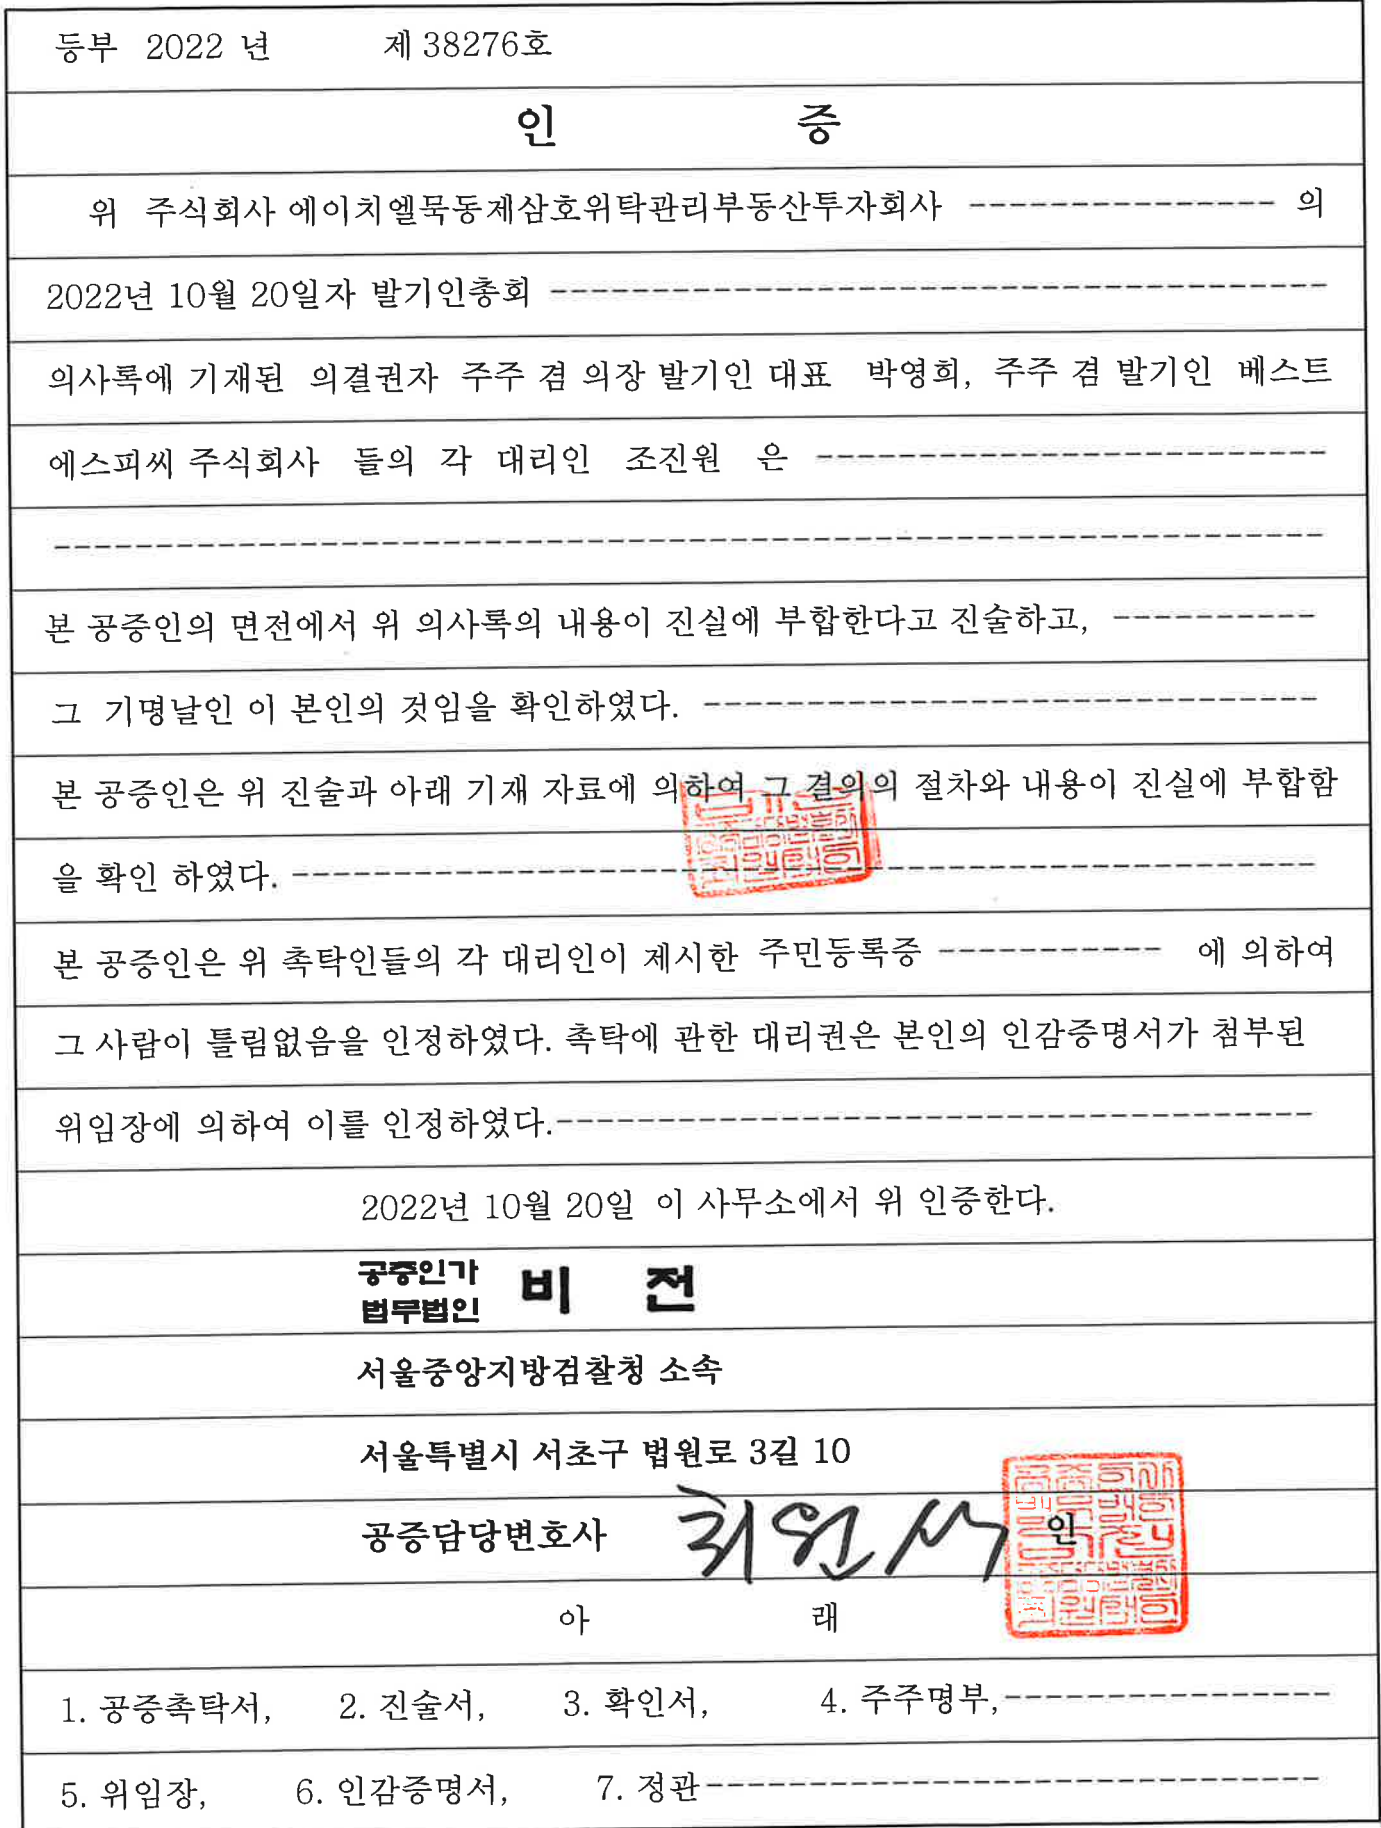 등부 2022 년 제 38276호
인 증
위 주식회사 에이치엘묵동제삼호위탁관리부동산투자회사 --------------- 의
2022년 10월 20일자 발기인총회 --------------------------------------
의사록에 기재된 의결권자 주주 겸 의장 발기인 대표 박영희, 주주 겸 발기인 베스트
에스피씨 주식회사 들의 각 대리인 조진원 은 -------------------------
--------------------------------------------------------------
본 공증인의 면전에서 위 의사록의 내용이 진실에 부합한다고 진술하고, ----------
그 기명날인 이 본인의 것임을 확인하였다. ------------------------------
본 공증인은 위 진술과 아래 기재 자료에 의하여 그 결의의 절차와 내용이 진실에 부합함
을 확인 하였다. --------------------------------------------------
본 공증인은 위 촉탁인들의 각 대리인이 제시한 주민등록증 ----------- 에 의하여
그 사람이 틀림없음을 인정하였다. 촉탁에 관한 대리권은 본인의 인감증명서가 첨부된
위임장에 의하여 이를 인정하였다.-------------------------------------
2022년 10월 20일 이 사무소에서 위 인증한다.
공증인가 법무법인 비 전
서울중앙지방검찰청 소속
서울특별시 서초구 법원로 3길 10
공증담당변호사 인
아 래
1. 공증촉탁서, 2. 진술서, 3. 확인서, 4. 주주명부,----------------
5. 위임장, 6. 인감증명서, 7. 정관------------------------------